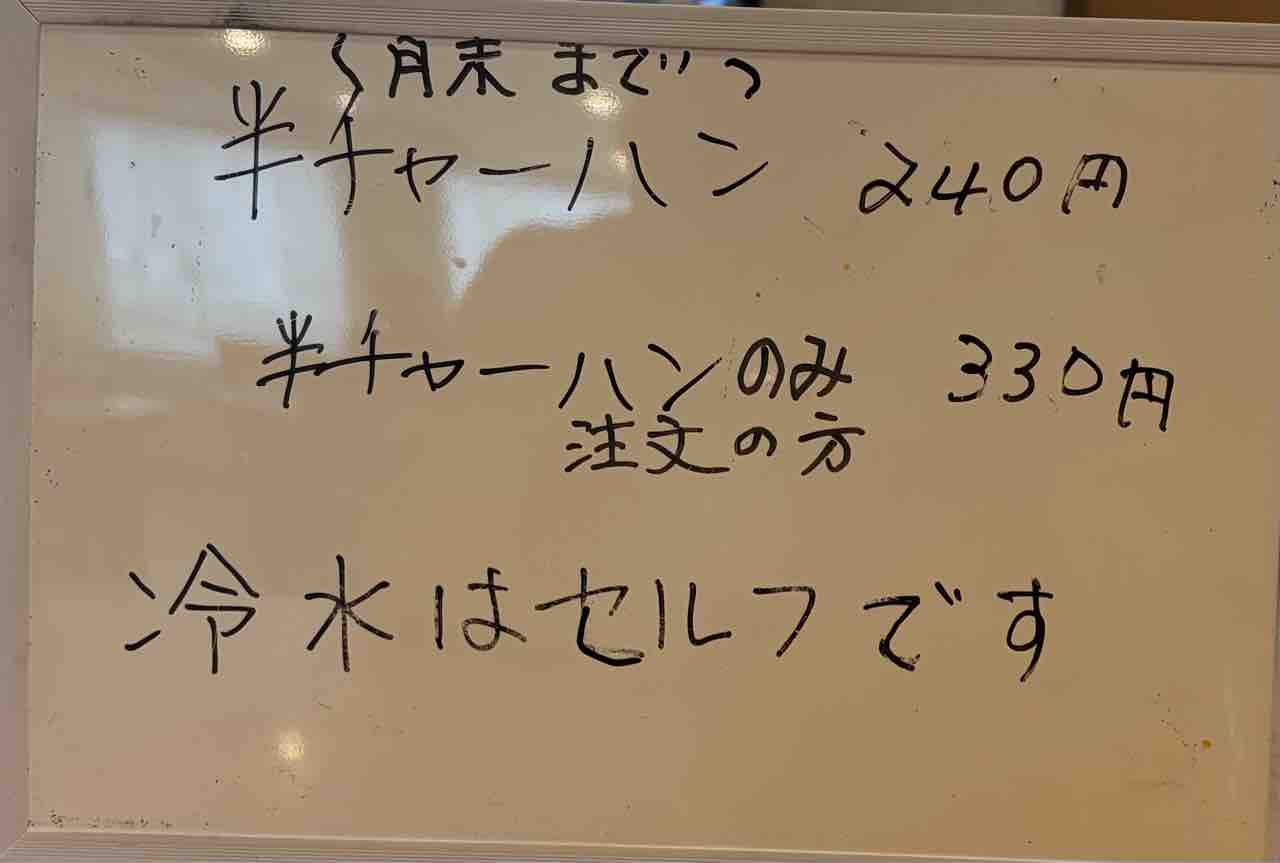 〜月末まで〜
半チャーハン 240円
半チャーハンのみ 330円
注文の方
冷水はセルフです